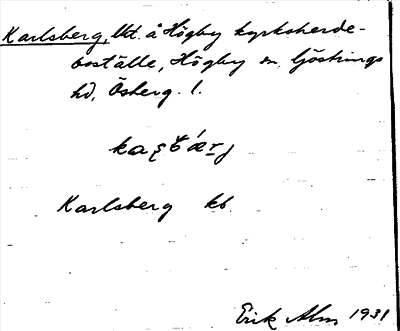 Karlsberg, Ut. å Högby kyrkoherde-
boställe, Högby sn. Göstrings
hd, Österg. l.
Karlsberg kb.
Erik Alm 1931